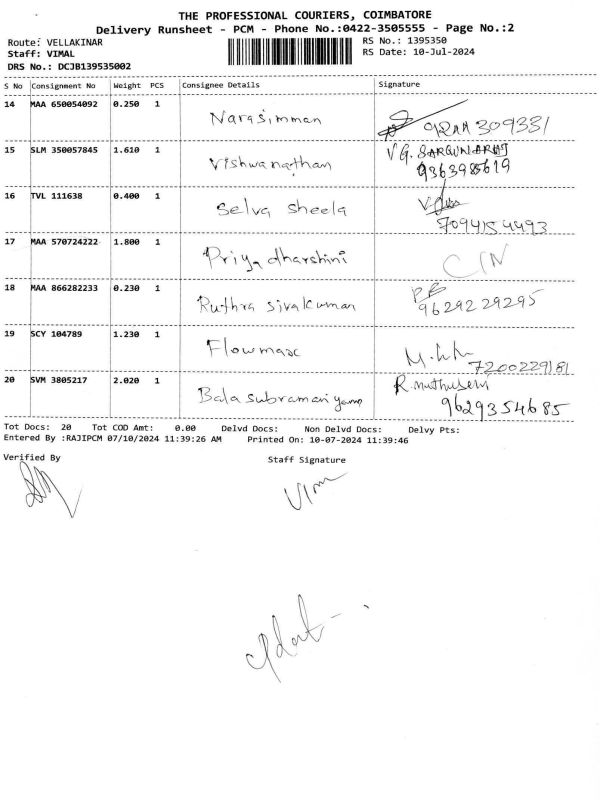 THE PROFESSIONAL COURIERS, COIMBATORE
Delivery Runsheet - PCM - Phone No.:0422-3505555 - Page No.:2
Route: VELLAKINAR RS No.: 1395350
Staff: VIMAL RS Date: 10-Jul-2024
DRS No.: DCJB139535002
S No Consignment No Weight PCS Consignee Details Signature
14 MAA 650054092 0.250 1 Narasimman 309331
15 SLM 350057845 1.610 1 Vishwanathan V G.
9363985619
16 TVL 111638 0.400 1 Selva sheela
7094154493
17 MAA 570724222 1.800 1 Priya dharshini
18 MAA 866282233 0.230 1 Ruthra sivakumar
9629229295
19 SCY 104789 1.230 1 Flowmax
7200229181
20 SVM 3805217 2.020 1 Balasubramaniyam
9629354685
Tot Docs: 20 Tot COD Amt: 0.00 Delvd Docs: Non Delvd Docs: Delvy Pts:
Entered By :RAJIPCM 07/10/2024 11:39:26 AM Printed On: 10-07-2024 11:39:46
Verified By Staff Signature